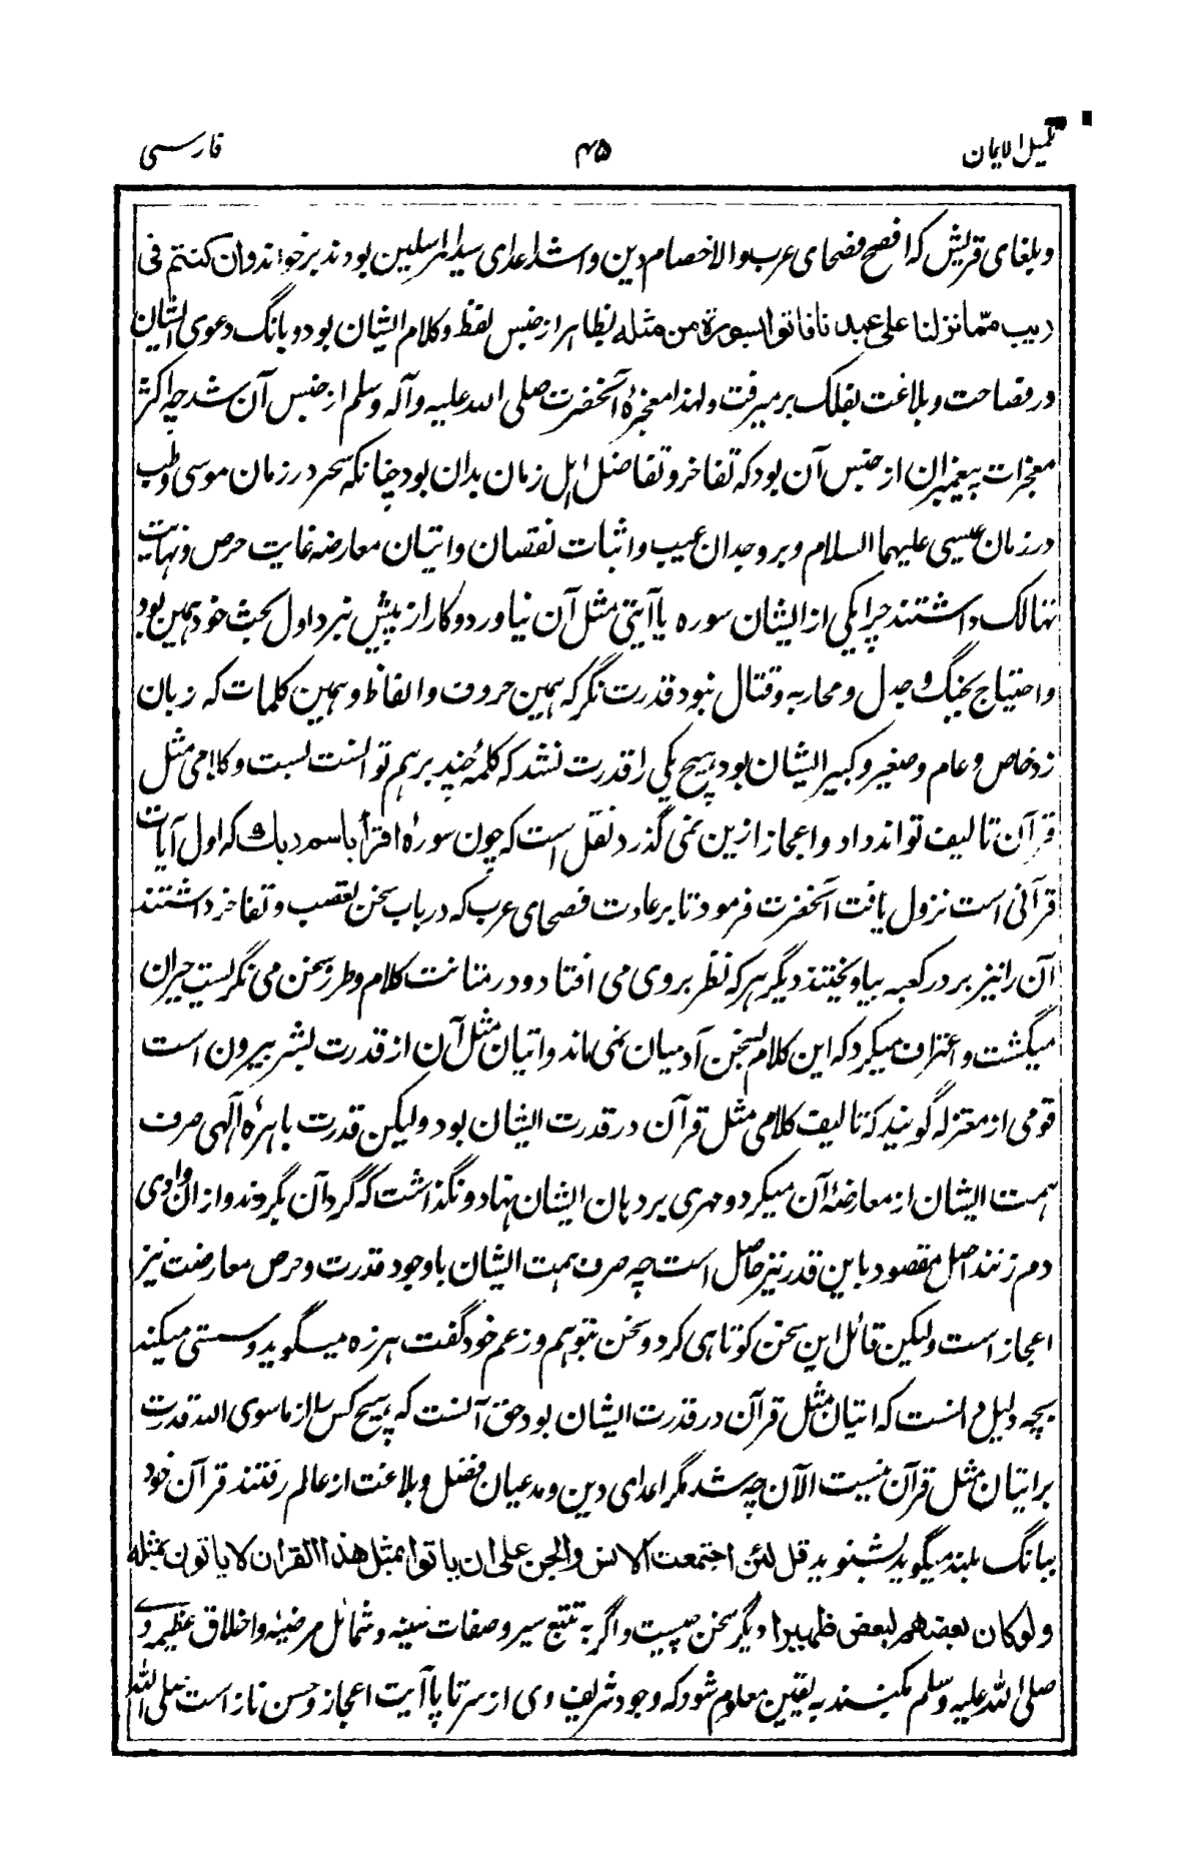 تکمیل الایمان
۴۵
فارسی
وبلغای قریش که افصح فصحای عرب والاخصام دین واشد اعدای سید المرسلین بودند برخواند وان کنتم فی
ریب مما نزلنا علی عبدنا فاتوا بسورة من مثله بظاهر از جنس لفظ وکلام ایشان بود وبانگ دعوی ایشان
در فصاحت وبلاغت بفلک بر میرفت ولهذا معجزۀ آنحضرت صلی الله علیه وآله وسلم از جنس آن شد چه اکثر
معجزات پیغمبران از جنس آن بود که تفاخر وتفاضل اهل زمان بدان بود چنانکه سحر در زمان موسی وطب
در زمان عیسی علیهما السلام وبر وجدان عیب واثبات نقصان واتیان معارضه غایت حرص ونهایت
تهالک داشتند چرا یکی از ایشان سوره یا آیتی مثل آن نیاورد وکار از پیش نبرد اول بحث خود همین بود
واحتیاج بجنگ وجدل ومحاربه وقتال نبود قدرت نگر که همین حروف والفاظ وهمین کلمات که زبان
زد خاص وعام وصغیر وکبیر ایشان بود هیچ یکی را قدرت نشد که کلمۀ چند برهم توانست بست وکلامی مثل
قرآن تالیف تواند داد واعجاز ازین نمی گذرد نقل است که چون سورۀ اقرأ باسم ربك که اول آیات
قرآنی است نزول یافت آنحضرت فرمود تا بر عادت فصحای عرب که در باب سخن تعصب وتفاخر داشتند
آن را نیز بر در کعبه بیاویختند دیگر هر که نظر بروی می افتاد ودر متانت کلام وطرز سخن می نگریست حیران
میگشت واعتراف میکرد که این کلام بسخن آدمیان نمی ماند واتیان مثل آن از قدرت بشر بیرون است
قومی از معتزله گویند که تالیف کلامی مثل قرآن در قدرت ایشان بود ولیکن قدرت باهرۀ الهی صرف
همت ایشان از معارضۀ آن میکرد ومهری بر دهان ایشان نهاد ونگذاشت که گرد آن بگردند واز ان وادی
دم زنند اصل مقصود باین قدر نیز حاصل است چه صرف همت ایشان باوجود قدرت وحرص معارضت نیز
اعجاز است ولیکن قائل این سخن کوتاهی کرد وسخن بتوهم وزعم خود گفت هرزه میگوید وسستی میکند
بچه دلیل دانست که اتیان مثل قرآن در قدرت ایشان بود حق آنست که هیچ کس را از ماسوی الله قدرت
بر اتیان مثل قرآن نیست الآن چه شد مگر اعدای دین ومدعیان فضل وبلاغت از عالم رفتند قرآن خود
ببانگ بلند میگوید بشنوید قل لئن اجتمعت الانس والجن علی ان یاتوا بمثل هذا القران لا یاتون بمثله
ولو کان بعضهم لبعض ظهیرا دیگر سخن چیست واگر به تتبع سیر وصفات سنیه وشمائل مرضیه واخلاق عظیمه وے
صلی الله علیه وسلم بکنند به یقین معلوم شود که وجود شریف وی از سر تا پا آیت اعجاز وحسن ناز است صلی الله